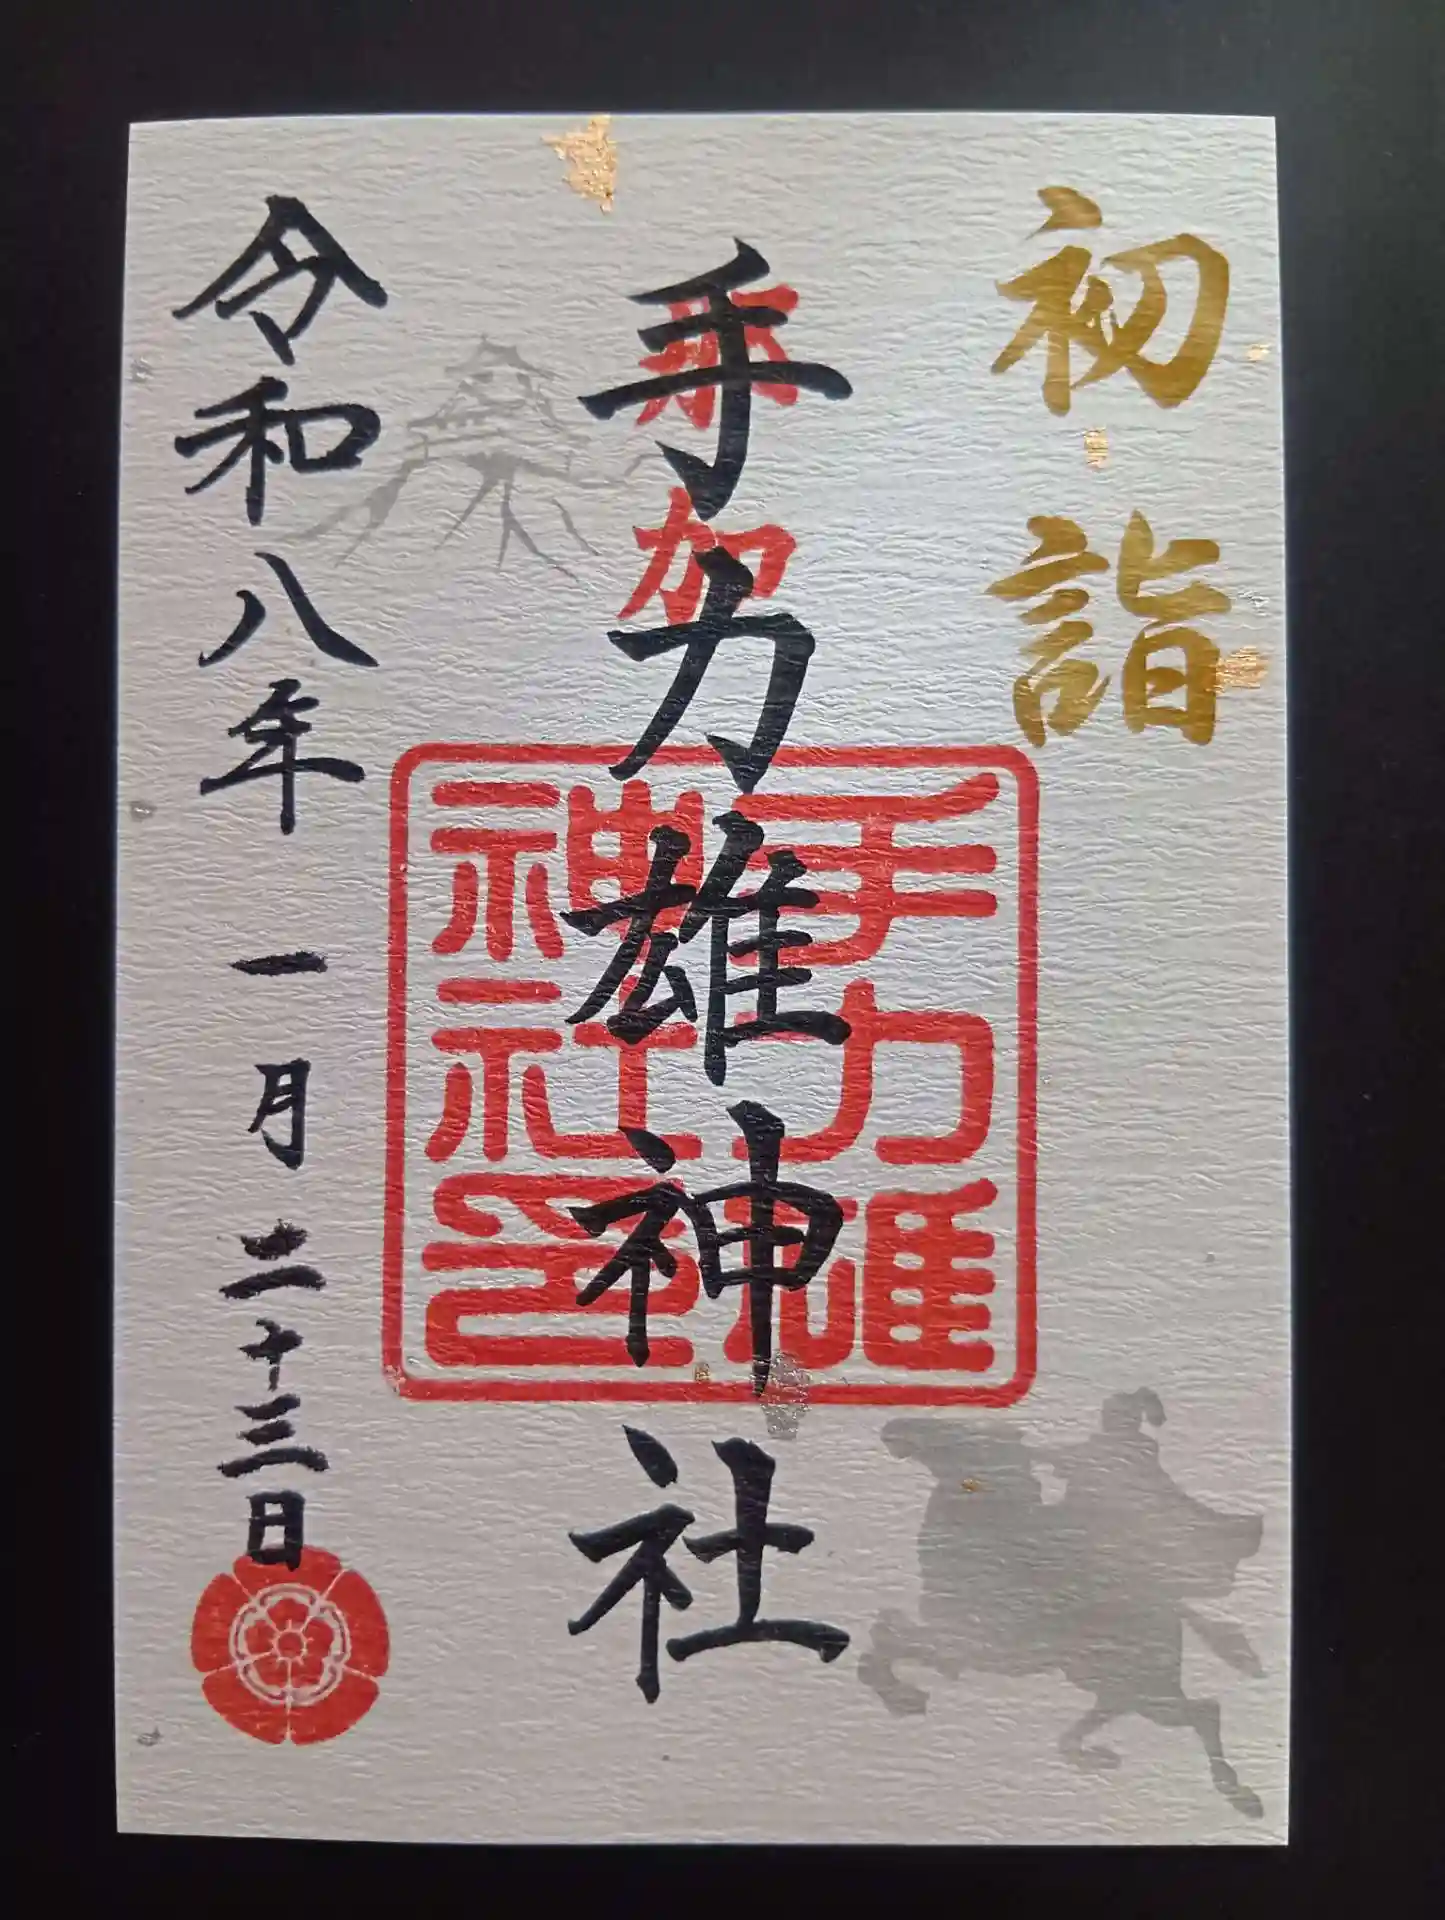 初詣
那加
手力雄神社
手力雄
神社印
令和八年一月二十三日